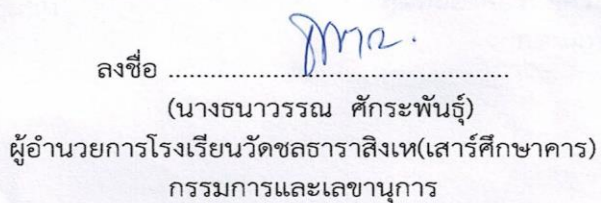 ลงชื่อ ................................................
(นางธนาวรรณ ศักระพันธุ์)
ผู้อำนวยการโรงเรียนวัดชลธาราสิงเห(เสาร์ศึกษาคาร)
กรรมการและเลขานุการ